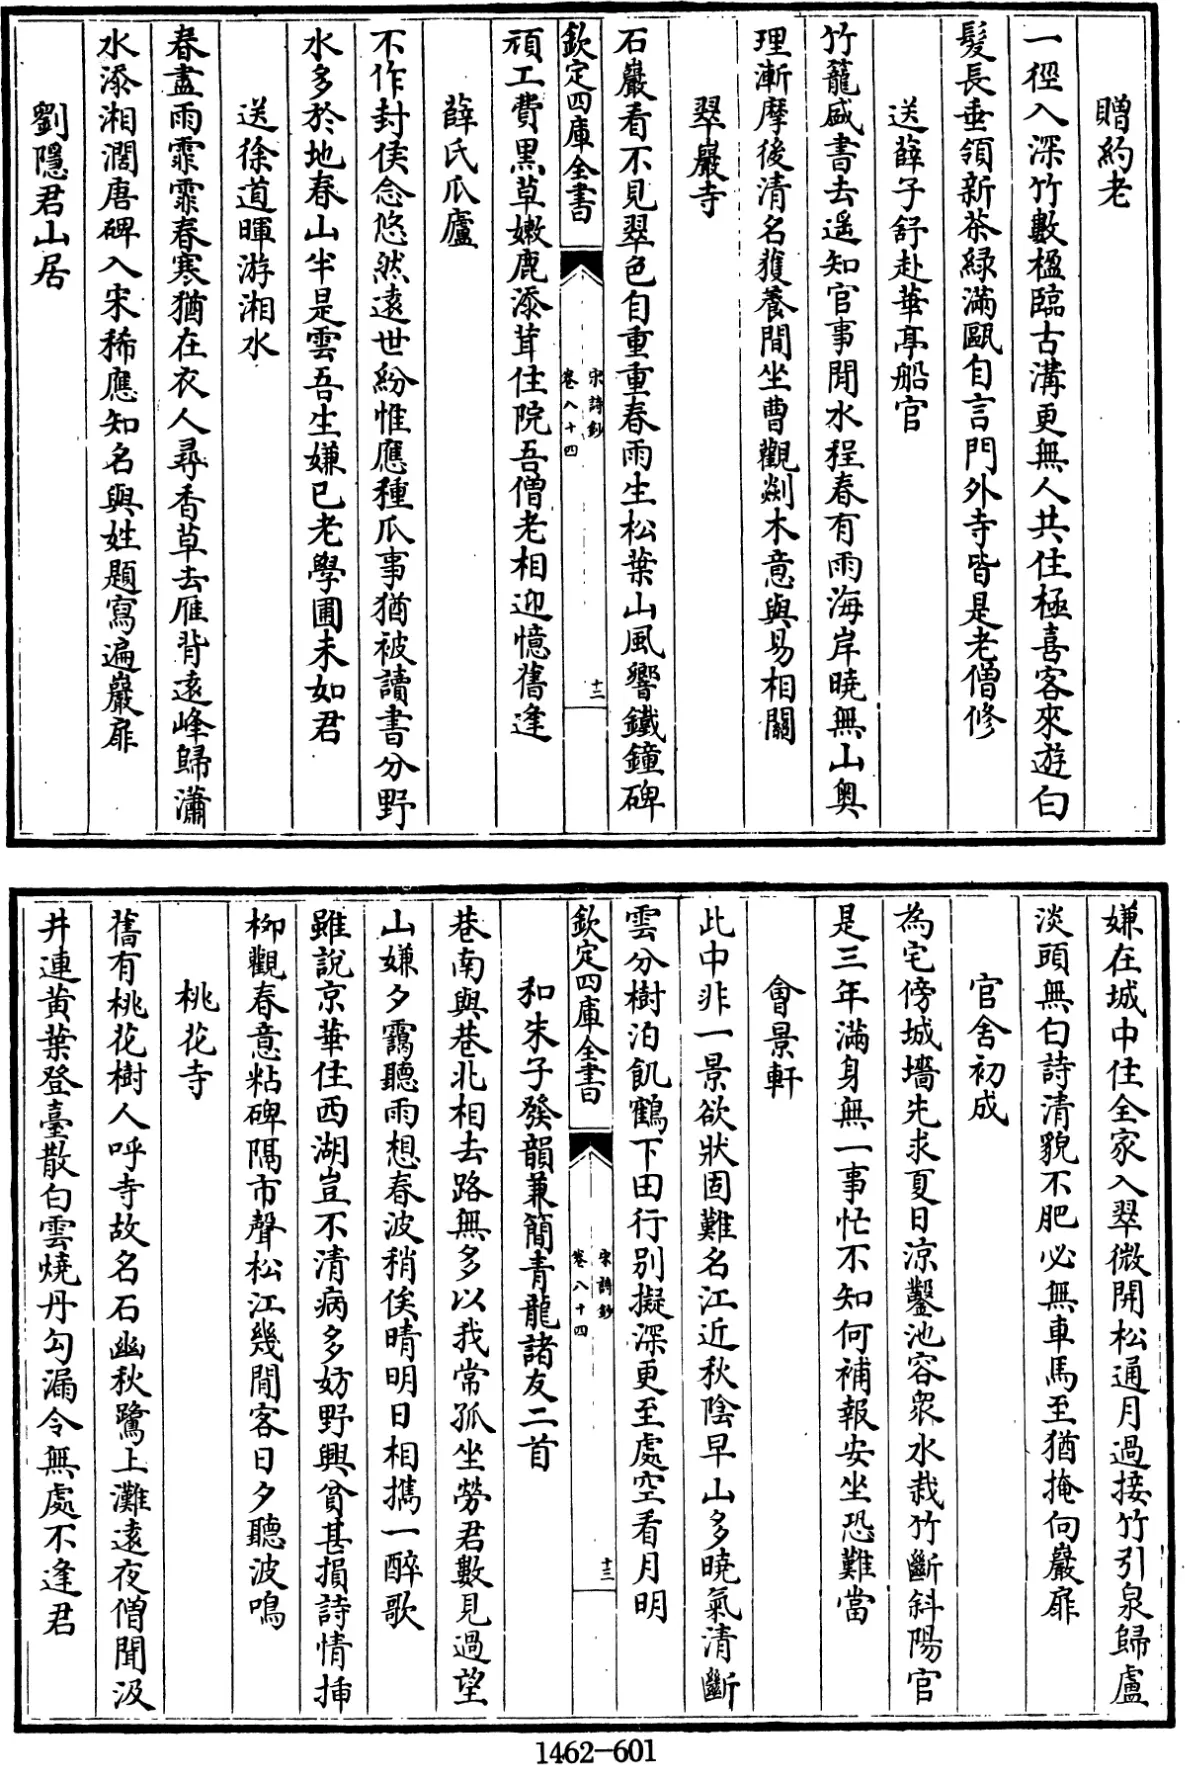 贈約老
一徑入深竹數楹臨古溝更無人共住極喜客來遊白
髮長垂領新茶緑滿甌自言門外寺皆是老僧修
送薛子舒赴華亭船官
竹籠盛書去遥知官事閒水程春有雨海岸曉無山奥
理漸摩後清名獲養間坐曹觀剡木意與易相關
翠巖寺
石巖看不見翠色自重重春雨生松葉山風響鐵鐘碑
欽定四庫全書
宋詩鈔
卷八十四
十二
頑工費黒草嫩鹿添茸住院吾僧老相迎憶舊逢
薛氏瓜廬
不作封侯念悠然逺世紛惟應種瓜事猶被讀書分野
水多於地春山半是雲吾生嫌已老學圃未如君
送徐道暉游湘水
春盡雨霏霏春寒猶在衣人尋香草去雁背逺峰歸瀟
水添湘濶唐碑入宋稀應知名與姓題寫遍巖扉
劉隱君山居
嫌在城中住全家入翠微開松通月過接竹引泉歸盧
淡頭無白詩清貌不肥必無車馬至猶掩向巖扉
官舍初成
為宅傍城墻先求夏日涼鑿池容衆水栽竹斷斜陽官
是三年滿身無一事忙不知何補報安坐恐難當
會景軒
此中非一景欲狀固難名江近秋陰早山多曉氣清斷
雲分樹泊飢鶴下田行别擬深更至處空看月明
欽定四庫全書
宋詩鈔
卷八十四
十三
和朱子發韻兼簡青龍諸友二首
巷南與巷北相去路無多以我常孤坐勞君數見過望
山嫌夕靄聽雨想春波稍俟晴明日相攜一醉歌
雖說京華住西湖豈不清病多妨野興貧甚損詩情挿
柳觀春意粘碑隔市聲松江幾閒客日夕聽波鳴
桃花寺
舊有桃花樹人呼寺故名石幽秋鷺上灘逺夜僧聞汲
井連黄葉登臺散白雲燒丹勾漏令無處不逢君
1462-601